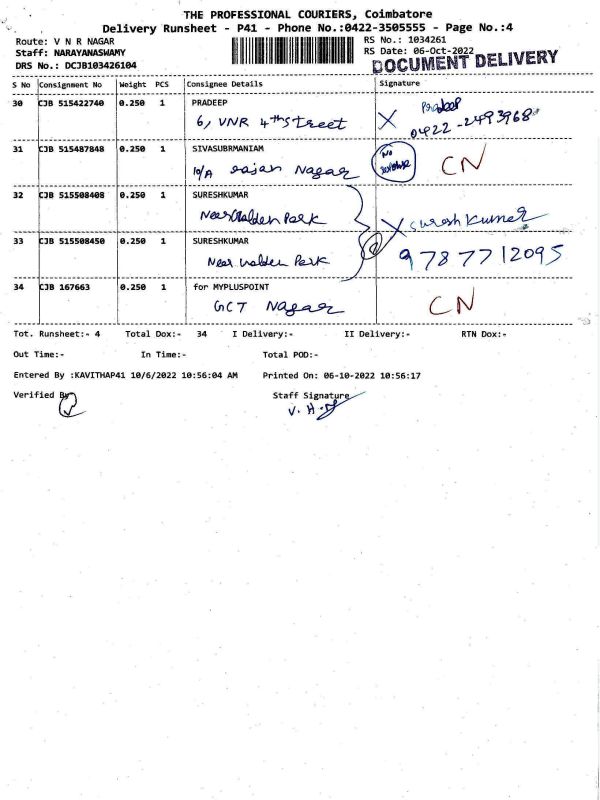 THE PROFESSIONAL COURIERS, Coimbatore
Delivery Runsheet - P41 - Phone No.:0422-3505555 - Page No.:4
Route: V N R NAGAR RS No.: 1034261
Staff: NARAYANASWAMY RS Date: 06-Oct-2022
DRS No.: DCJB103426104 DOCUMENT DELIVERY
S No Consignment No Weight PCS Consignee Details Signature
30 CJB 515422740 0.250 1 PRADEEP Pradeep
6, VNR 4th Street X 0422-2493968
31 CJB 515487848 0.250 1 SIVASUBRMANIAM No
10/A Rajan Nagar CN
32 CJB 515508408 0.250 1 SURESHKUMAR
Near Walden Park X Suresh Kumar
33 CJB 515508450 0.250 1 SURESHKUMAR
Near Walden Park 9787712095
34 CJB 167663 0.250 1 for MYPLUSPOINT
GCT Nagar CN
Tot. Runsheet:- 4 Total Dox:- 34 I Delivery:- II Delivery:- RTN Dox:-
Out Time:- In Time:- Total POD:-
Entered By :KAVITHAP41 10/6/2022 10:56:04 AM Printed On: 06-10-2022 10:56:17
Verified By Staff Signature